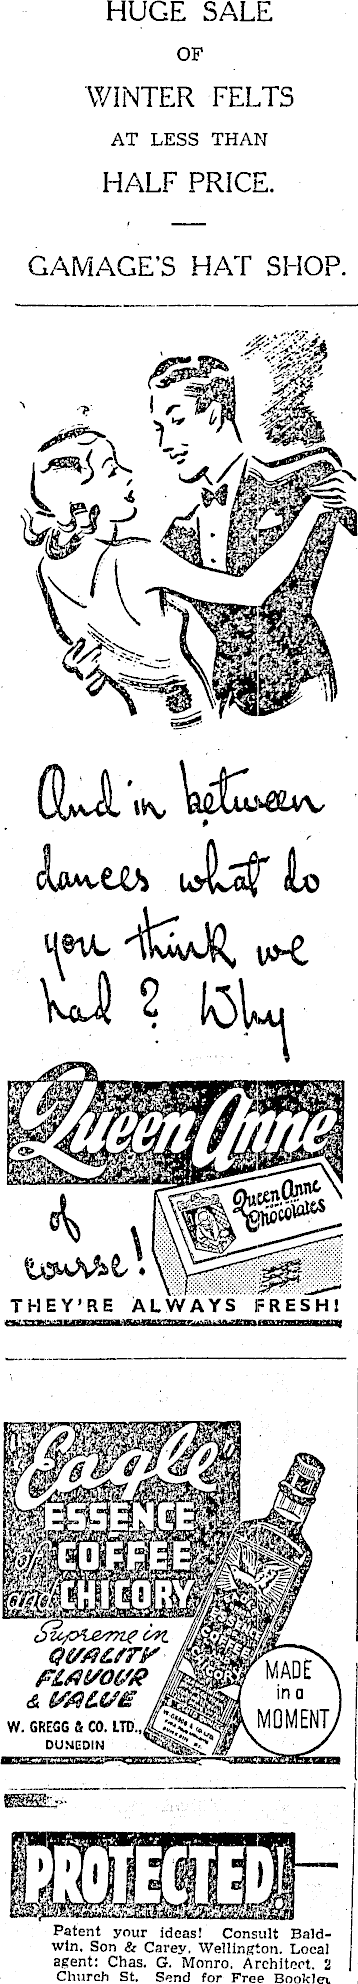 HUGE SALE
OF
WINTER FELTS
AT LESS THAN
HALF PRICE.
GAMAGE'S HAT SHOP.
And in between
dances what do
you think we
had? Why
Queen Anne
of
course!
Queen Anne
Chocolates
THEY'RE ALWAYS FRESH!
"Eagle"
ESSENCE
of COFFEE
and CHICORY
Supreme in
QUALITY
FLAVOUR
& VALUE
W. GREGG & CO. LTD.,
DUNEDIN
MADE
in a
MOMENT
PROTECTED!
Patent your ideas! Consult Bald-
win, Son & Carey, Wellington. Local
agent: Chas. G. Monro, Architect, 2
Church St. Send for Free Booklet